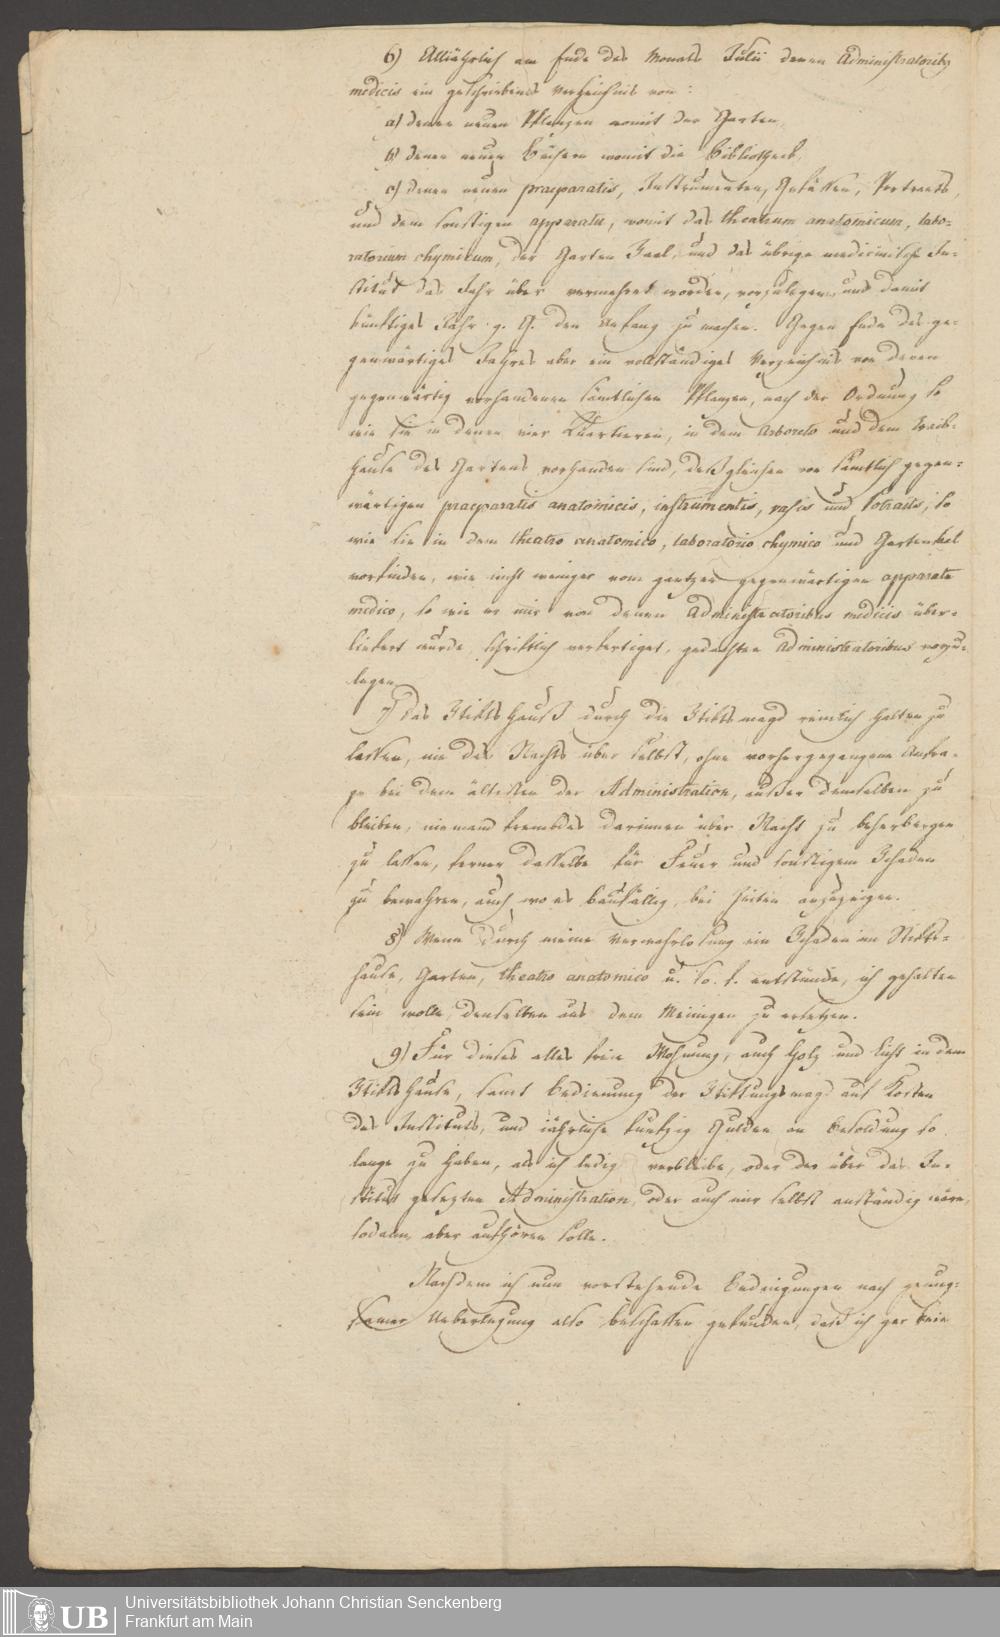 6) Alljährlich am Ende des Monats Julii denen Administratoribg
medicis ein geschriebenes Verzeichnis von:
a) denen neuen Pflanzen womit der Garten,
b) denen neuen Büchern womit die Bibliotheck,
c) denen neuen praeparatis, Instrumenten, Gefässen, Portraits,
und dem sonstigen apparatu, womit das theatrum anatomicum, labo-
ratorium chymicum, der Garten Saal, und das übrige medicinische In-
stitut das Jahr über vermehret worden, vorzulegen, und damit
künftiges Jahr g. G. den Anfang zu machen. Gegen Ende des ge-
genwärtiges Jahres aber ein vollständiges Verzeichnis von denen
gegenwärtig vorhandenen sämtlichen Pflanzen, nach der Ordnung so
wie sie in denen vier Quartieren, in dem Arboreto und dem Treib-
hause des Gartens vorhanden sind, deßgleichen von sämtlich gegen-
wärtigen praeparatis anatomicis, instrumentis, vasis und Potraits, so
wie sie in dem theatro anatomico, laboratorio chymico und Gartensal
vorfinden, wie nicht weniger vom gantzen gegenwärtigen apparatu
medico, so wie er mir von denen Administratoribus medicis über-
liefert wurde, schriftlich verfertiget, gedachten Administratoribus vorzu-
legen.
7) Das Stiftshauß durch die Stiftsmagd reinlich halten zu
lassen, nie des Nachts über selbst, ohne vorhergegangene Anfra-
ge bei dem ältesten der Administration, außer demselben zu
bleiben, niemand fremdes darinnen über Nacht zu beherbergen
zu lassen, ferner dasselbe für Feuer und sonstigem Schaden
zu bewahren, auch wo es baufällig, bei Zeiten anzuzeigen.
8) Wenn durch meine Verwahrlosung ein Schaden im Stifts-
hause, Garten, theatro anatomico u. so. f. entstünde, ich gehalten
sein wolle, denselben aus dem Meinigen zu ersetzen.
9) Für dieses alles freie Wohnung, auch Holz und Licht in dem
Stiftshause, samt Bedienung der Stiftungsmagd auf Kosten
des Instituts, und jährliche funfzig Gulden an Besoldung so
lange zu haben, als ich ledig verbleibe, oder der über das In-
stitut gesezten Administration, oder auch mir selbst anständig wäre,
sodann aber aufhören solle.
Nachdem ich nun vorstehende Bedingungen nach genug-
samer Ueberlegung also beschaffen gefunden, daß ich gar kein
Universitätsbibliothek Johann Christian Senckenberg
Frankfurt am Main
UB